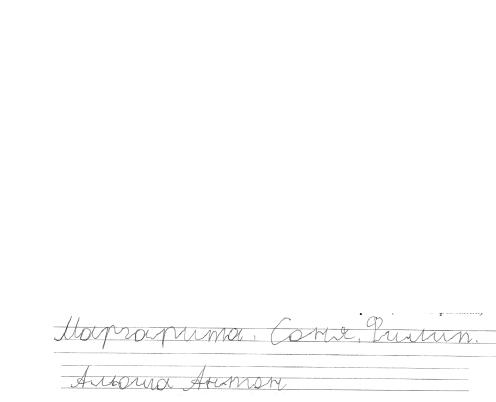 Маргарита. Соня. Филип.
Альоша Антон